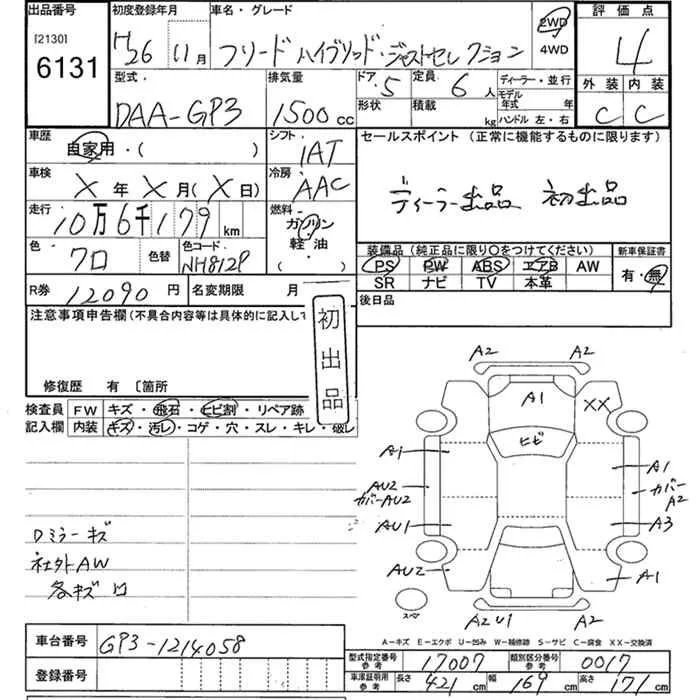 出品番号 初度登録年月 車名・グレード 2WD 評価点
[2130] 6131 H26 11月 フリードハイブリッド・ジャストセレクション 4WD 4
型式 排気量 ドア 5 定員 6人 ディーラー・並行 外装 内装
DAA-GP3 1500cc 形状 積載 kg モデル年式 年 ハンドル 左・右 C C
車歴 シフト セールスポイント（正常に機能するものに限ります）
自家用・( ) IAT
車検 冷房 ディーラー出品 初出品
X年X月(X日) AAC
走行 燃料
10万6千179km ガソリン
色 色替 色コード 軽・油 装備品（純正品に限り○をつけてください） 新車保証書
クロ NH812P ・( ) PS PW ABS エアB AW 有・無
SR ナビ TV 本革
R券 12090円 名変期限 月 後日品
注意事項申告欄（不具合内容等は具体的に記入して
初出品
修復歴 有 〔箇所
検査員 FW キズ・飛石・ヒビ割・リペア跡
記入欄 内装 キズ・汚レ・コゲ・穴・スレ・キレ・破レ
A2 A2
A1 XX
ヒビ
A1 A1
AU2 カバーAU2 カバーA2
AU1 A3
AU2 A1
スペア A2U1 A2
Dミラーキズ
社外AW
各キズ
A－キズ E－エクボ U－凹み W－補修跡 S－サビ C－腐食 XX－交換済
車台番号 GP3-1214058
型式指定番号 17007 類別区分番号 0017
登録番号
車庫証明用 長さ 421cm 幅 169cm 高さ 171cm